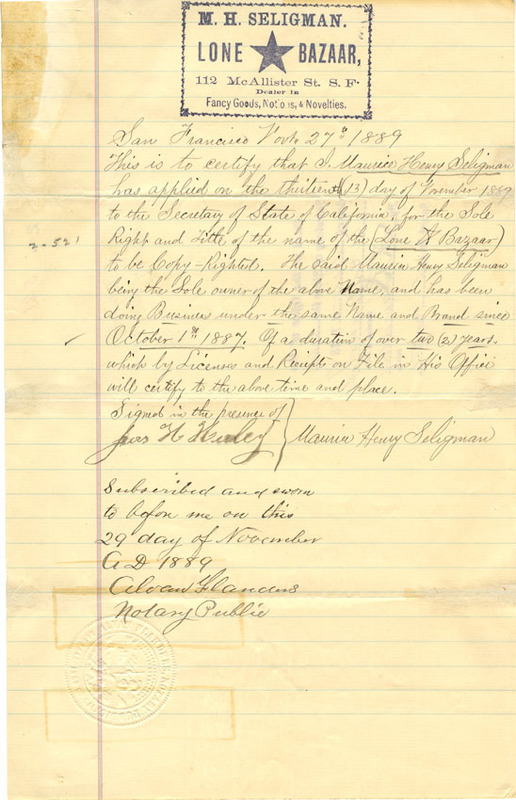 M. H. SELIGMAN.
LONE ★ BAZAAR,
112 McAllister St. S. F.
Dealer in
Fancy Goods, Notions, & Novelties.
San Francisco 27th 1889
This is to certify that I, Maurice Henry Seligman
has applied on the thirteenth (13) day of November 1889
to the Secretary of State of California, for the Sole
Right and Title of the name of the (Lone ★ Bazaar)
to be Copy-Righted. The said Maurice Henry Seligman
being the Sole owner of the above Name, and has been
doing Business under the same Name and Brand since
October 1st 1887. Of a duration of over two (2) years.
which by Licenses and Receipts on File in His Office
will certify to the above time and place.
Signed in the presence of
H Maurice Henry Seligman
Subscribed and sworn
to before me on this
29 day of November
A D 1889
Alvan Flanders
Notary Public